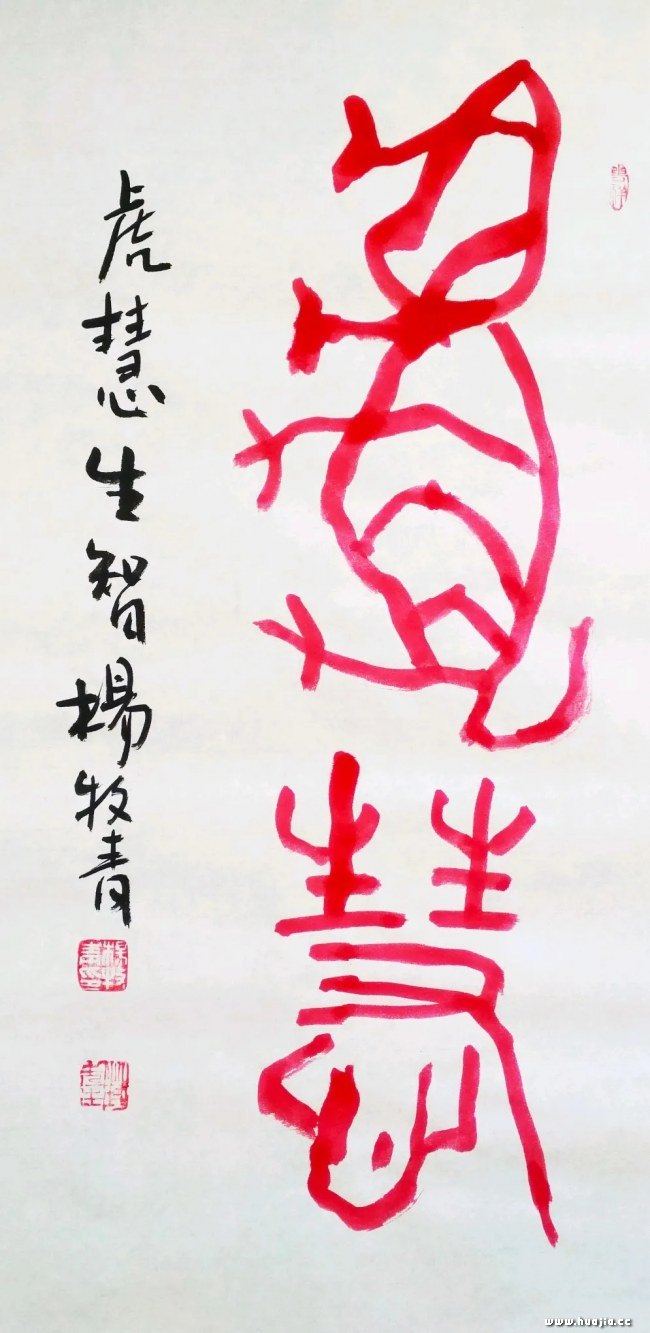 虎慧
虎慧生智楊牧青
www.huajia.cc